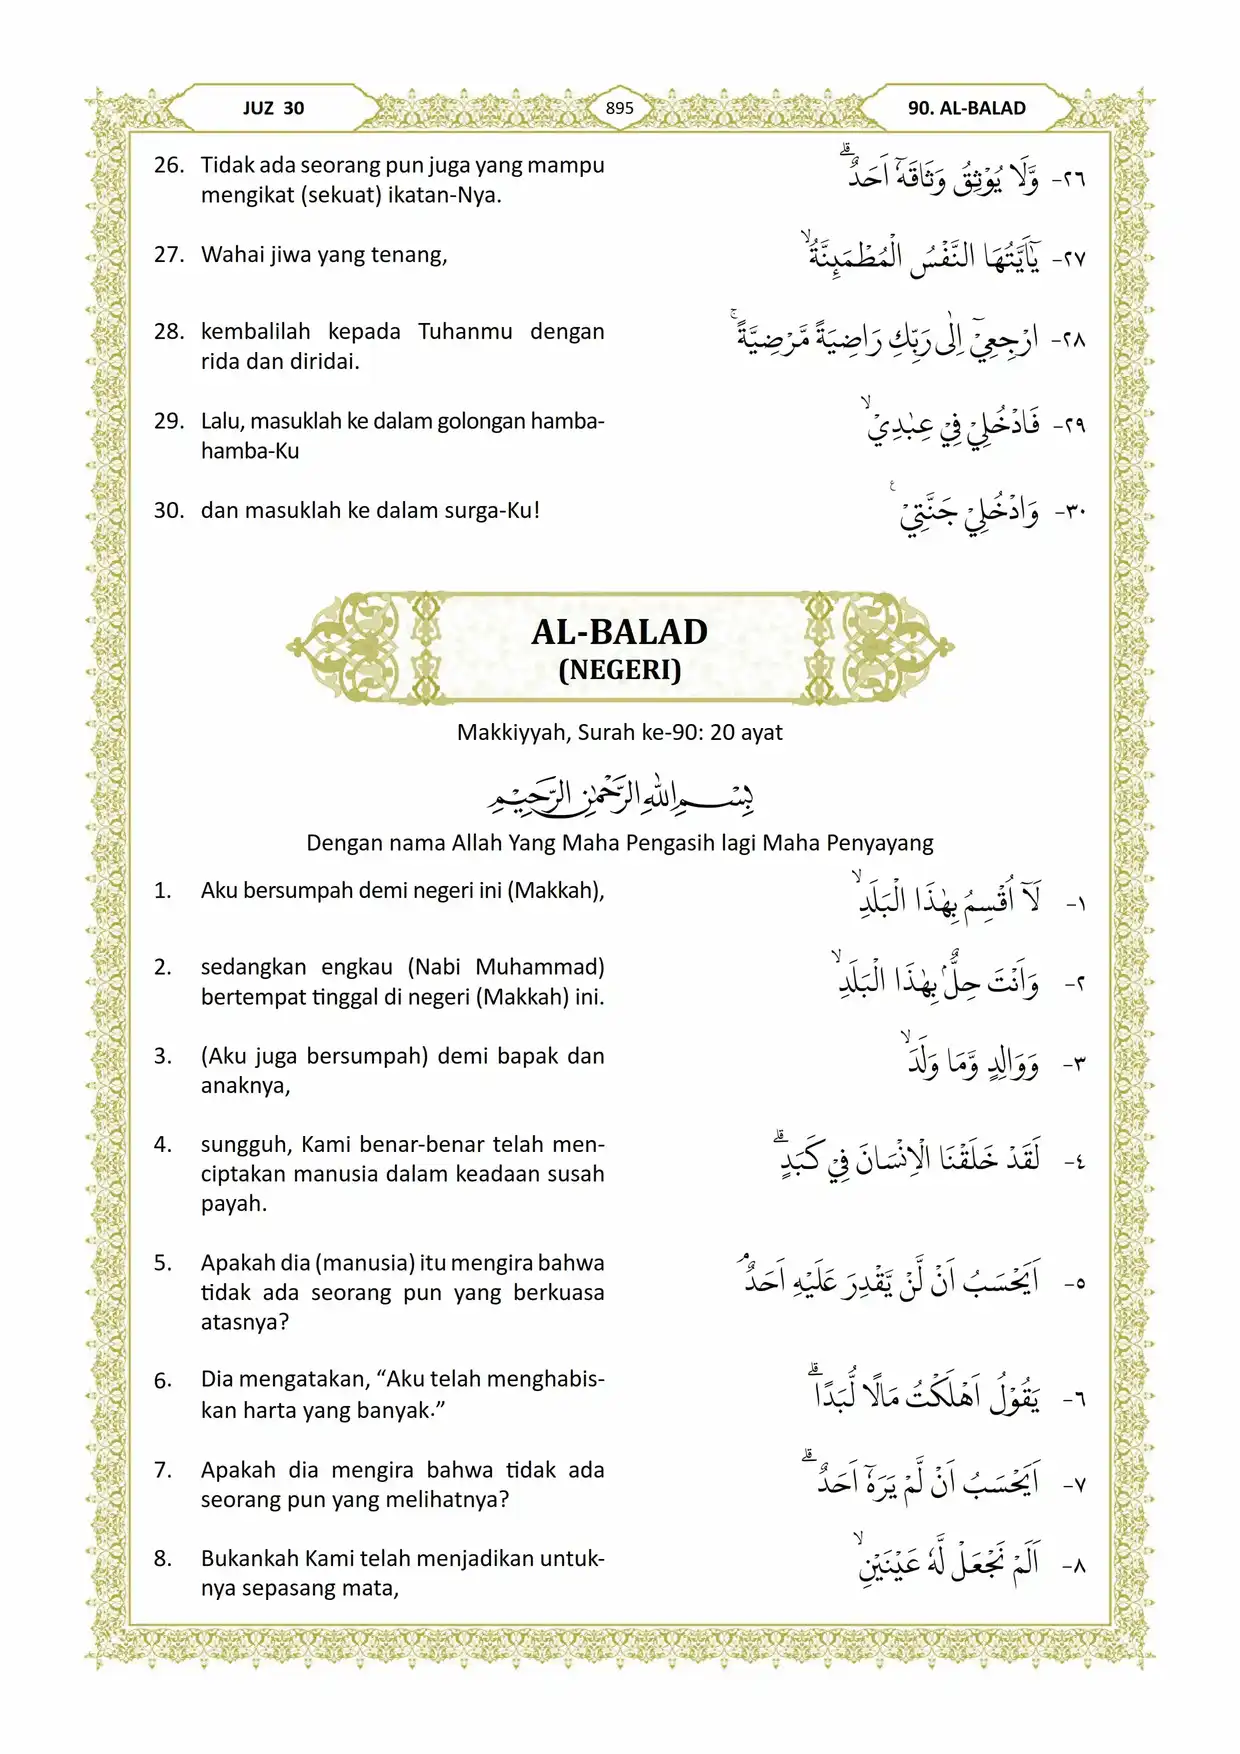 JUZ 30
895
90. AL-BALAD
26. Tidak ada seorang pun juga yang mampu
mengikat (sekuat) ikatan-Nya.
٢٦- وَّلَا يُوْثِقُ وَثَاقَهٗٓ اَحَدٌ ۗ
27. Wahai jiwa yang tenang,
٢٧- يٰٓاَيَّتُهَا النَّفْسُ الْمُطْمَىِٕنَّةُ ۙ
28. kembalilah kepada Tuhanmu dengan
rida dan diridai.
٢٨- ارْجِعِيْٓ اِلٰى رَبِّكِ رَاضِيَةً مَّرْضِيَّةً ۚ
29. Lalu, masuklah ke dalam golongan hamba-
hamba-Ku
٢٩- فَادْخُلِيْ فِيْ عِبٰدِيْ ۙ
30. dan masuklah ke dalam surga-Ku!
٣٠- وَادْخُلِيْ جَنَّتِيْ ࣖ
AL-BALAD
(NEGERI)
Makkiyyah, Surah ke-90: 20 ayat
بِسْمِ اللّٰهِ الرَّحْمٰنِ الرَّحِيْمِ
Dengan nama Allah Yang Maha Pengasih lagi Maha Penyayang
1. Aku bersumpah demi negeri ini (Makkah),
١- لَآ اُقْسِمُ بِهٰذَا الْبَلَدِ ۙ
2. sedangkan engkau (Nabi Muhammad)
bertempat tinggal di negeri (Makkah) ini.
٢- وَاَنْتَ حِلٌّ ۢ بِهٰذَا الْبَلَدِ ۙ
3. (Aku juga bersumpah) demi bapak dan
anaknya,
٣- وَوَالِدٍ وَّمَا وَلَدَ ۙ
4. sungguh, Kami benar-benar telah men-
ciptakan manusia dalam keadaan susah
payah.
٤- لَقَدْ خَلَقْنَا الْاِنْسَانَ فِيْ كَبَدٍ ۗ
5. Apakah dia (manusia) itu mengira bahwa
tidak ada seorang pun yang berkuasa
atasnya?
٥- اَيَحْسَبُ اَنْ لَّنْ يَّقْدِرَ عَلَيْهِ اَحَدٌ ۘ
6. Dia mengatakan, “Aku telah menghabis-
kan harta yang banyak.”
٦- يَقُوْلُ اَهْلَكْتُ مَالًا لُّبَدًا ۗ
7. Apakah dia mengira bahwa tidak ada
seorang pun yang melihatnya?
٧- اَيَحْسَبُ اَنْ لَّمْ يَرَهٗٓ اَحَدٌ ۗ
8. Bukankah Kami telah menjadikan untuk-
nya sepasang mata,
٨- اَلَمْ نَجْعَلْ لَّهٗ عَيْنَيْنِ ۙ